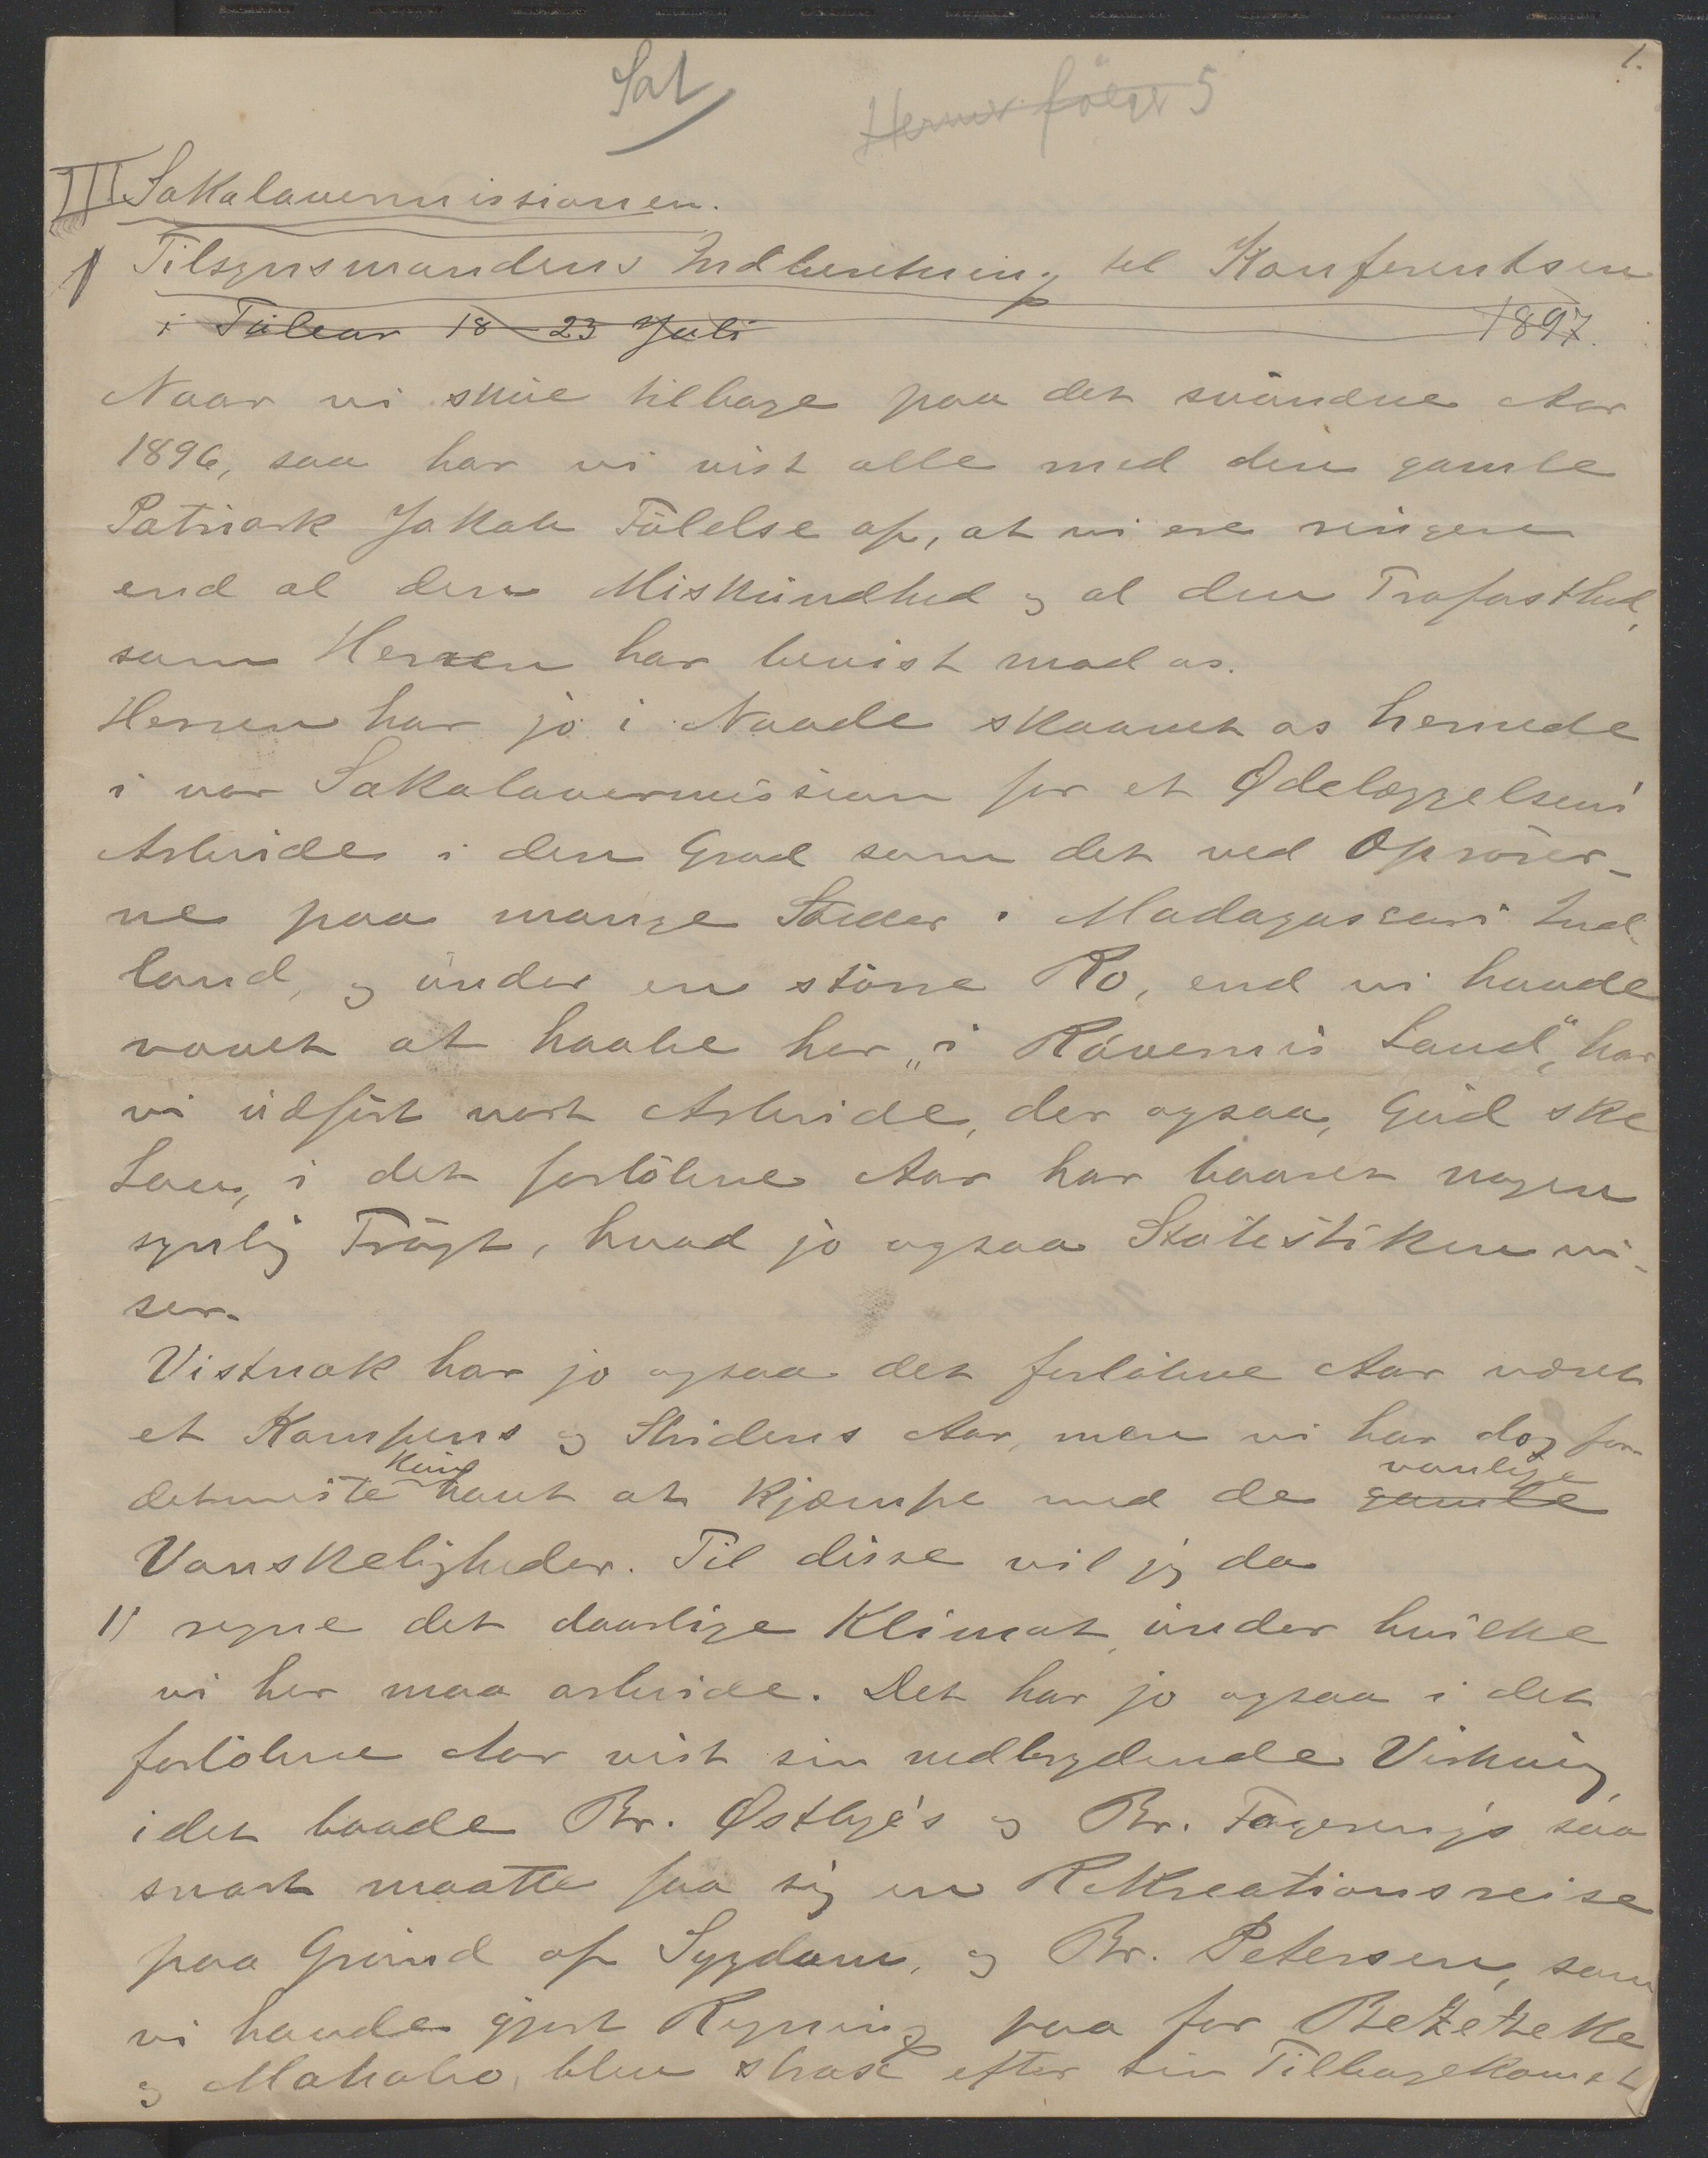 1.
Sat
Herover følger 5
III Sakalavermissionen.
1 Tilsynsmandens Indberetning til Konferentsen
i Tulear 18-23 Juli 1897.
Naar vi skue tilbage paa det svundne Aar
1896, saa har vi vist alle med den gamle
Patriark Jakob Følelse af, at vi ere ringere
end al den Miskundhed og al den Trofasthed,
som Herren har bevist mod os.
Herren har jo i Naade skaanet os hernede
i vor Sakalavermission for et Ødelæggelsens
Arbeide i den Grad som det ved Oprører-
ne paa mange Steder i Madagascars Ind-
land, og under en større Ro, end vi havde
vovet at haabe her „i Røvernes Land", har
vi udført vort Arbeide, der ogsaa, Gud ske
Lov, i det forløbne Aar har baaret nogen
synlig Frugt, hvad jo ogsaa Statistiken vi-
ser.
Vistnok har jo ogsaa det forløbne Aar været
et Kampens og Stridens Aar, men vi har dog for-
detmeste kun havt at kjæmpe med de gamle vanlige
Vanskeligheder. Til disse vil jeg da
1) regne det daarlige Klimat under hvilke
vi her maa arbeide. Det har jo ogsaa i det
forløbne Aar vist sin nedbrydende Virkning,
idet baade Br. Østbye's og Br. Fagereng's saa
snart maatte faa sig en Rekreationsreise
paa Grund af Sygdom, og Br. Petersen, som
vi havde gjort Regning paa for Bezezeke
og Mahabo, blev strax efter sin Tilbagekomst